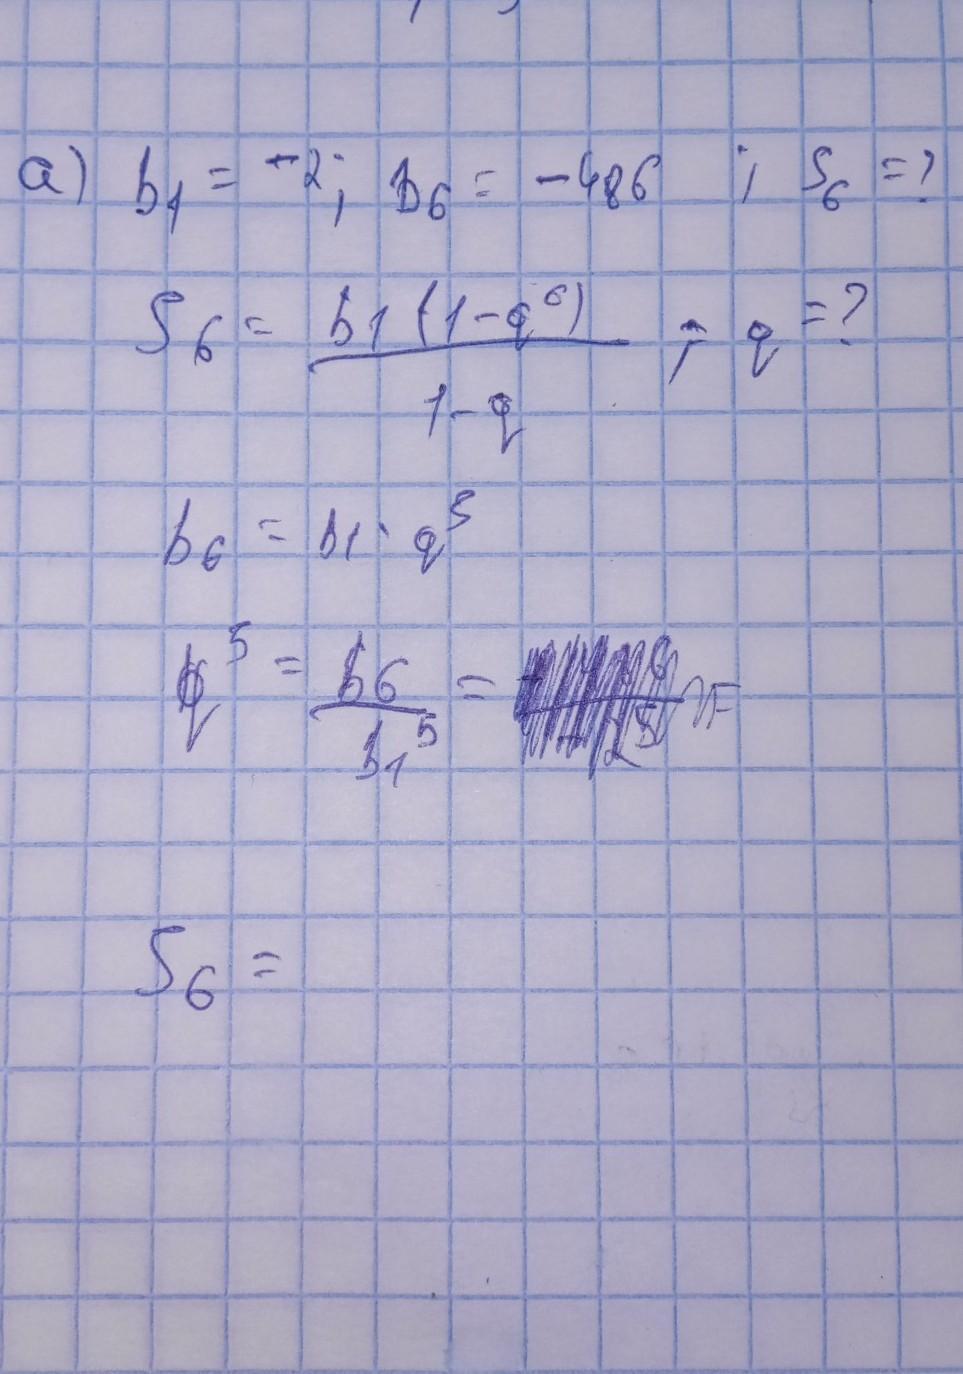 a) b₁ = -2; b₆ = -486 ; S₆ = ?
S₆ = b₁(1-q⁶) / 1-q ; q = ?
b₆ = b₁ · q⁵
q⁵ = b₆ / b₁⁵ =
S₆ =